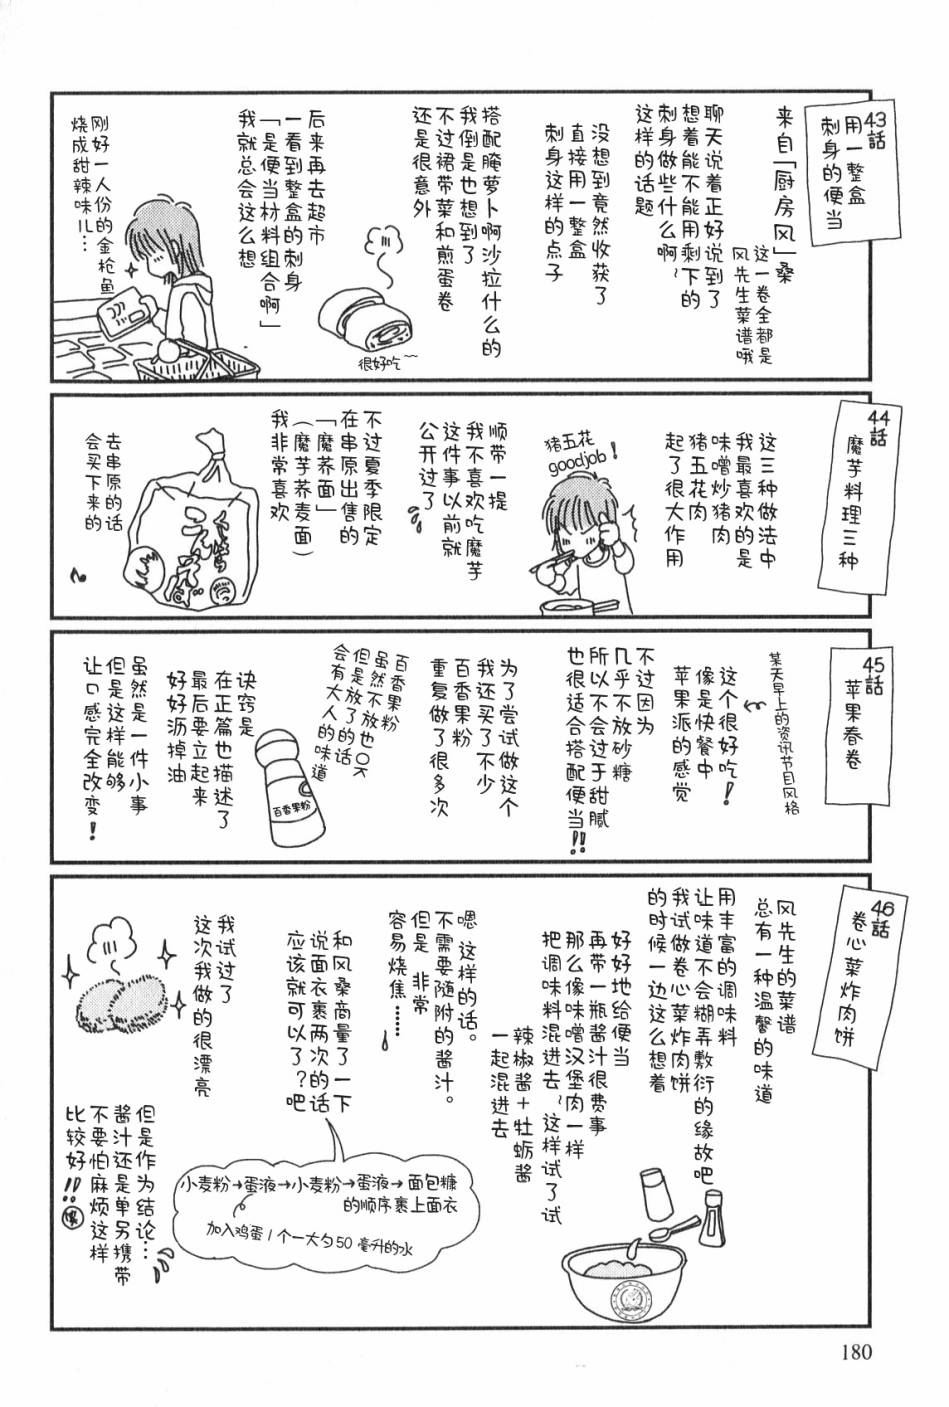 43話
用一整盒
刺身的便当
来自「厨房风」桑
这一卷全都是
风先生菜谱哦
聊天说着正好说到了
想着能不能用剩下的
刺身做些什么啊~
这样的话题
没想到竟然收获了
直接用一整盒
刺身这样的点子
搭配腌萝卜啊沙拉什么的
我倒是也想到了
不过裙带菜和煎蛋卷
还是很意外
很好吃~~
后来再去超市
一看到整盒的刺身
「是便当材料组合啊」
我就总会这么想
刚好一人份的金枪鱼
烧成甜辣味儿…
44話
魔芋料理三种
这三种做法中
我最喜欢的是
味噌炒猪肉
猪五花肉
起了很大作用
猪五花
goodjob!
顺带一提
我不喜欢吃魔芋
这件事以前就
公开过了
不过夏季限定
在串原出售的
「魔荞面」
(魔芋荞麦面)
我非常喜欢
去串原的话
会买下来的
45話
苹果春卷
某天早上的资讯节目风格
这个很好吃!
像是快餐中
苹果派的感觉
不过因为
几乎不放砂糖
所以不会过于甜腻
也很适合搭配便当!!
为了尝试做这个
我还买了不少
百香果粉
重复做了很多次
百香果粉
虽然不放也OK
但是放了的话
会有大人的味道
百香果粉
诀窍是
在正篇也描述了
最后要立起来
好好沥掉油
虽然是一件小事
但是这样能够
让口感完全改变!
46話
卷心菜炸肉饼
风先生的菜谱
总有一种温馨的味道
用丰富的调味料
让味道不会糊弄敷衍的缘故吧
我试做卷心菜炸肉饼
的时候一边这么想着
好好地给便当
再带一瓶酱汁很费事
那么像味噌汉堡肉一样
把调味料混进去~这样试了试
辣椒酱+牡蛎酱
一起混进去
嗯这样的话。
不需要随附的酱汁。
但是 非常
容易烧焦……
和风桑商量了一下
说面衣裹两次的话
应该就可以了?吧
小麦粉→蛋液→小麦粉→蛋液→面包糠
的顺序裹上面衣
加入鸡蛋1个一大勺50毫升的水
我试过了
这次我做的很漂亮
但是作为结论…
酱汁还是单另携带
不要怕麻烦这样
比较好!!
180